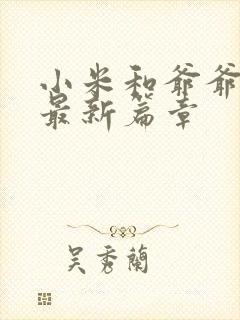 小米和爷爷
最新篇章
吴秀兰